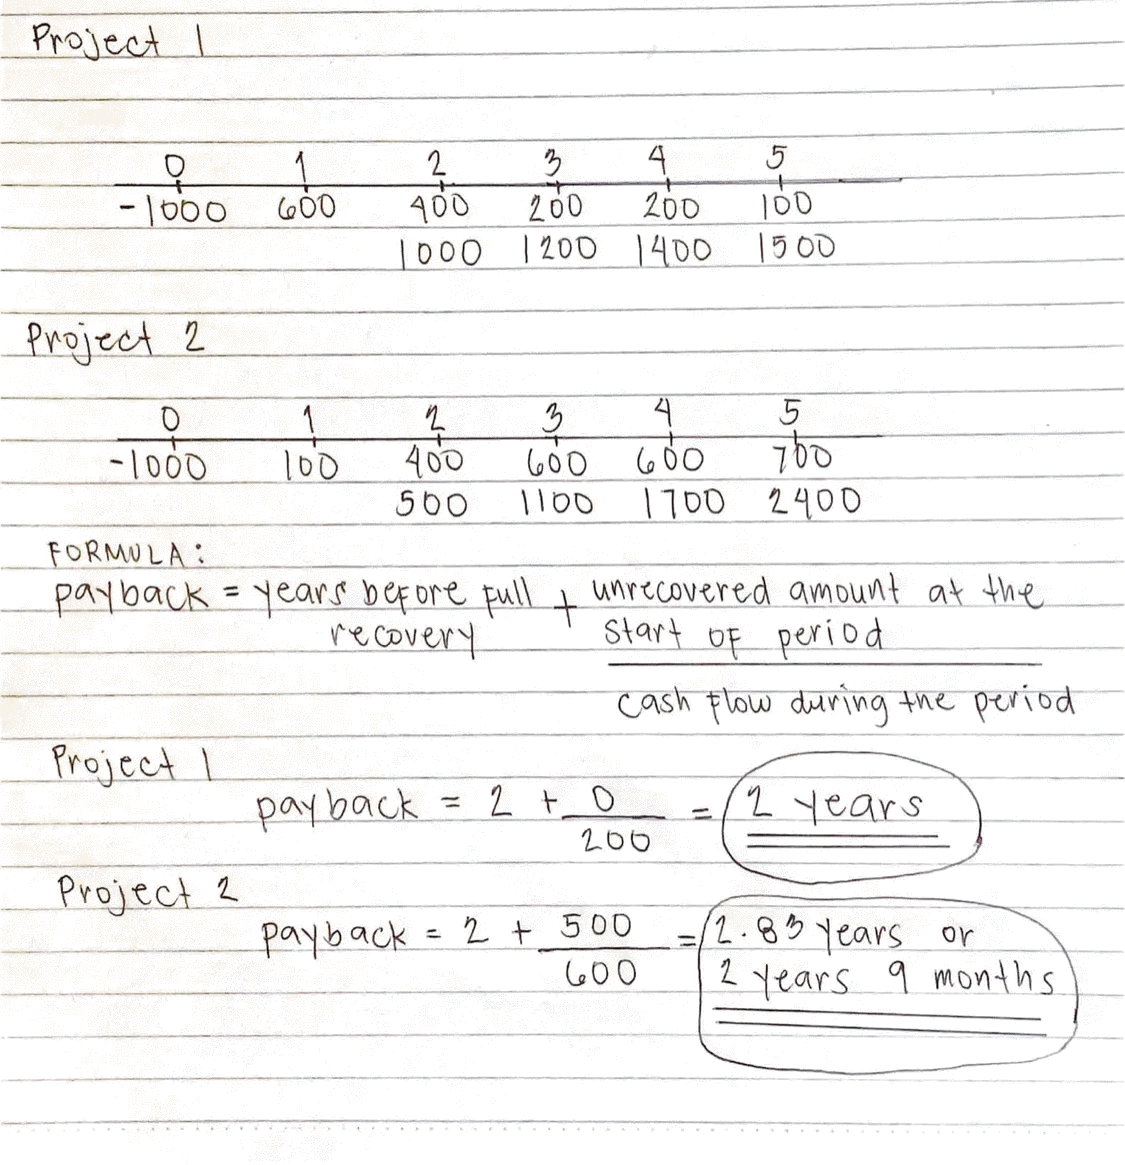 Project 1
0 1 2 3 4 5
-1000 600 400 200 200 100
1000 1200 1400 1500
Project 2
0 1 2 3 4 5
-1000 100 400 600 600 700
500 1100 1700 2400
FORMULA:
payback = years before full + unrecovered amount at the
recovery start of period
cash flow during the period
Project 1
payback = 2 + 0 = 2 years
200
Project 2
payback = 2 + 500 = 2.83 years or
600 2 years 9 months